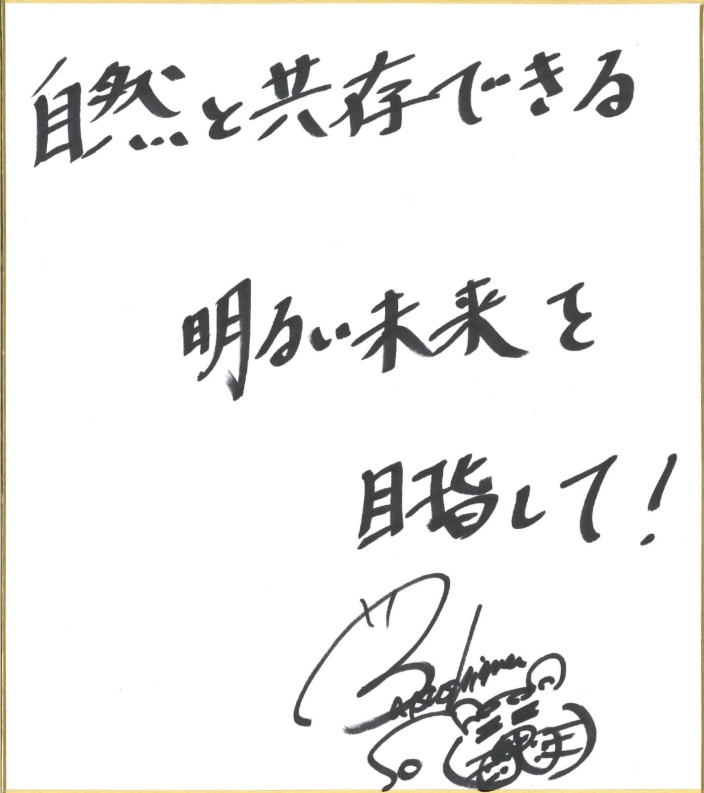 自然と共存できる
明るい未来を
目指して!